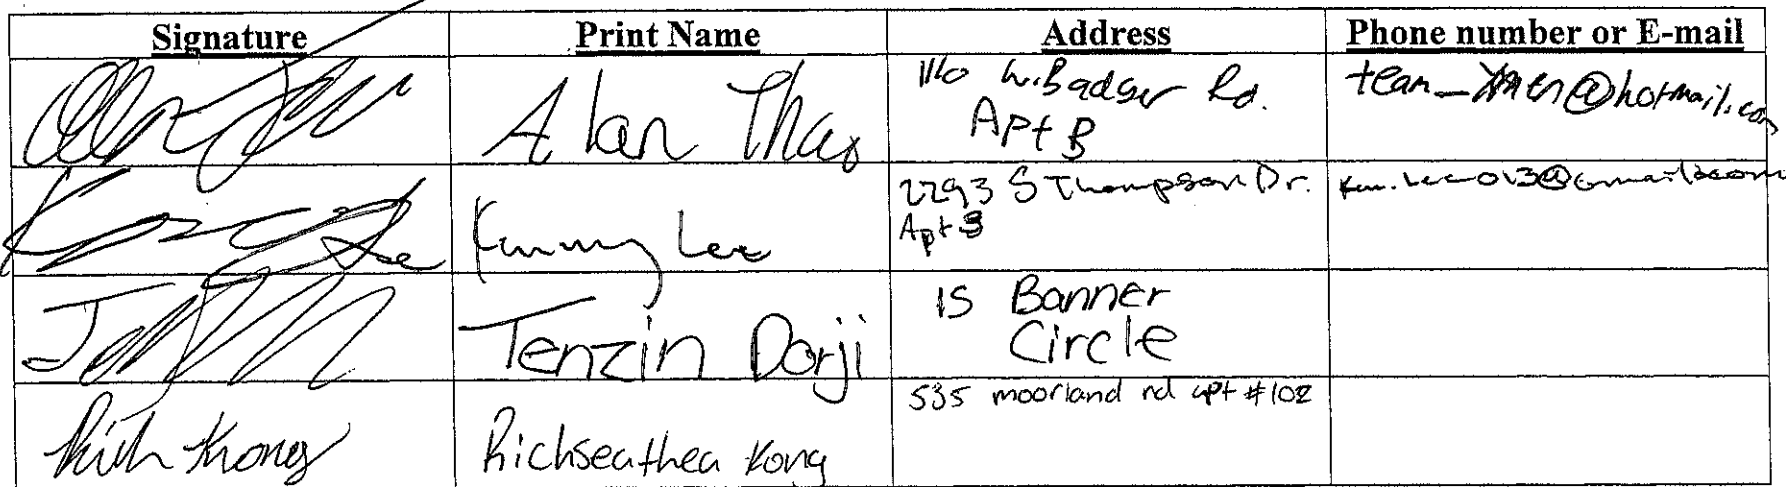 Signature Print Name Address Phone number or E-mail
Alan Thao 1110 W. Badger Rd. team_xmen@hotmail.com
Apt B
Lee Kummy Lee 2293 S Thompson Dr.
Apt 3
Tenzin Dorji 15 Banner
Circle
Rich Kong Richseathea Kong 535 moorland rd apt #102